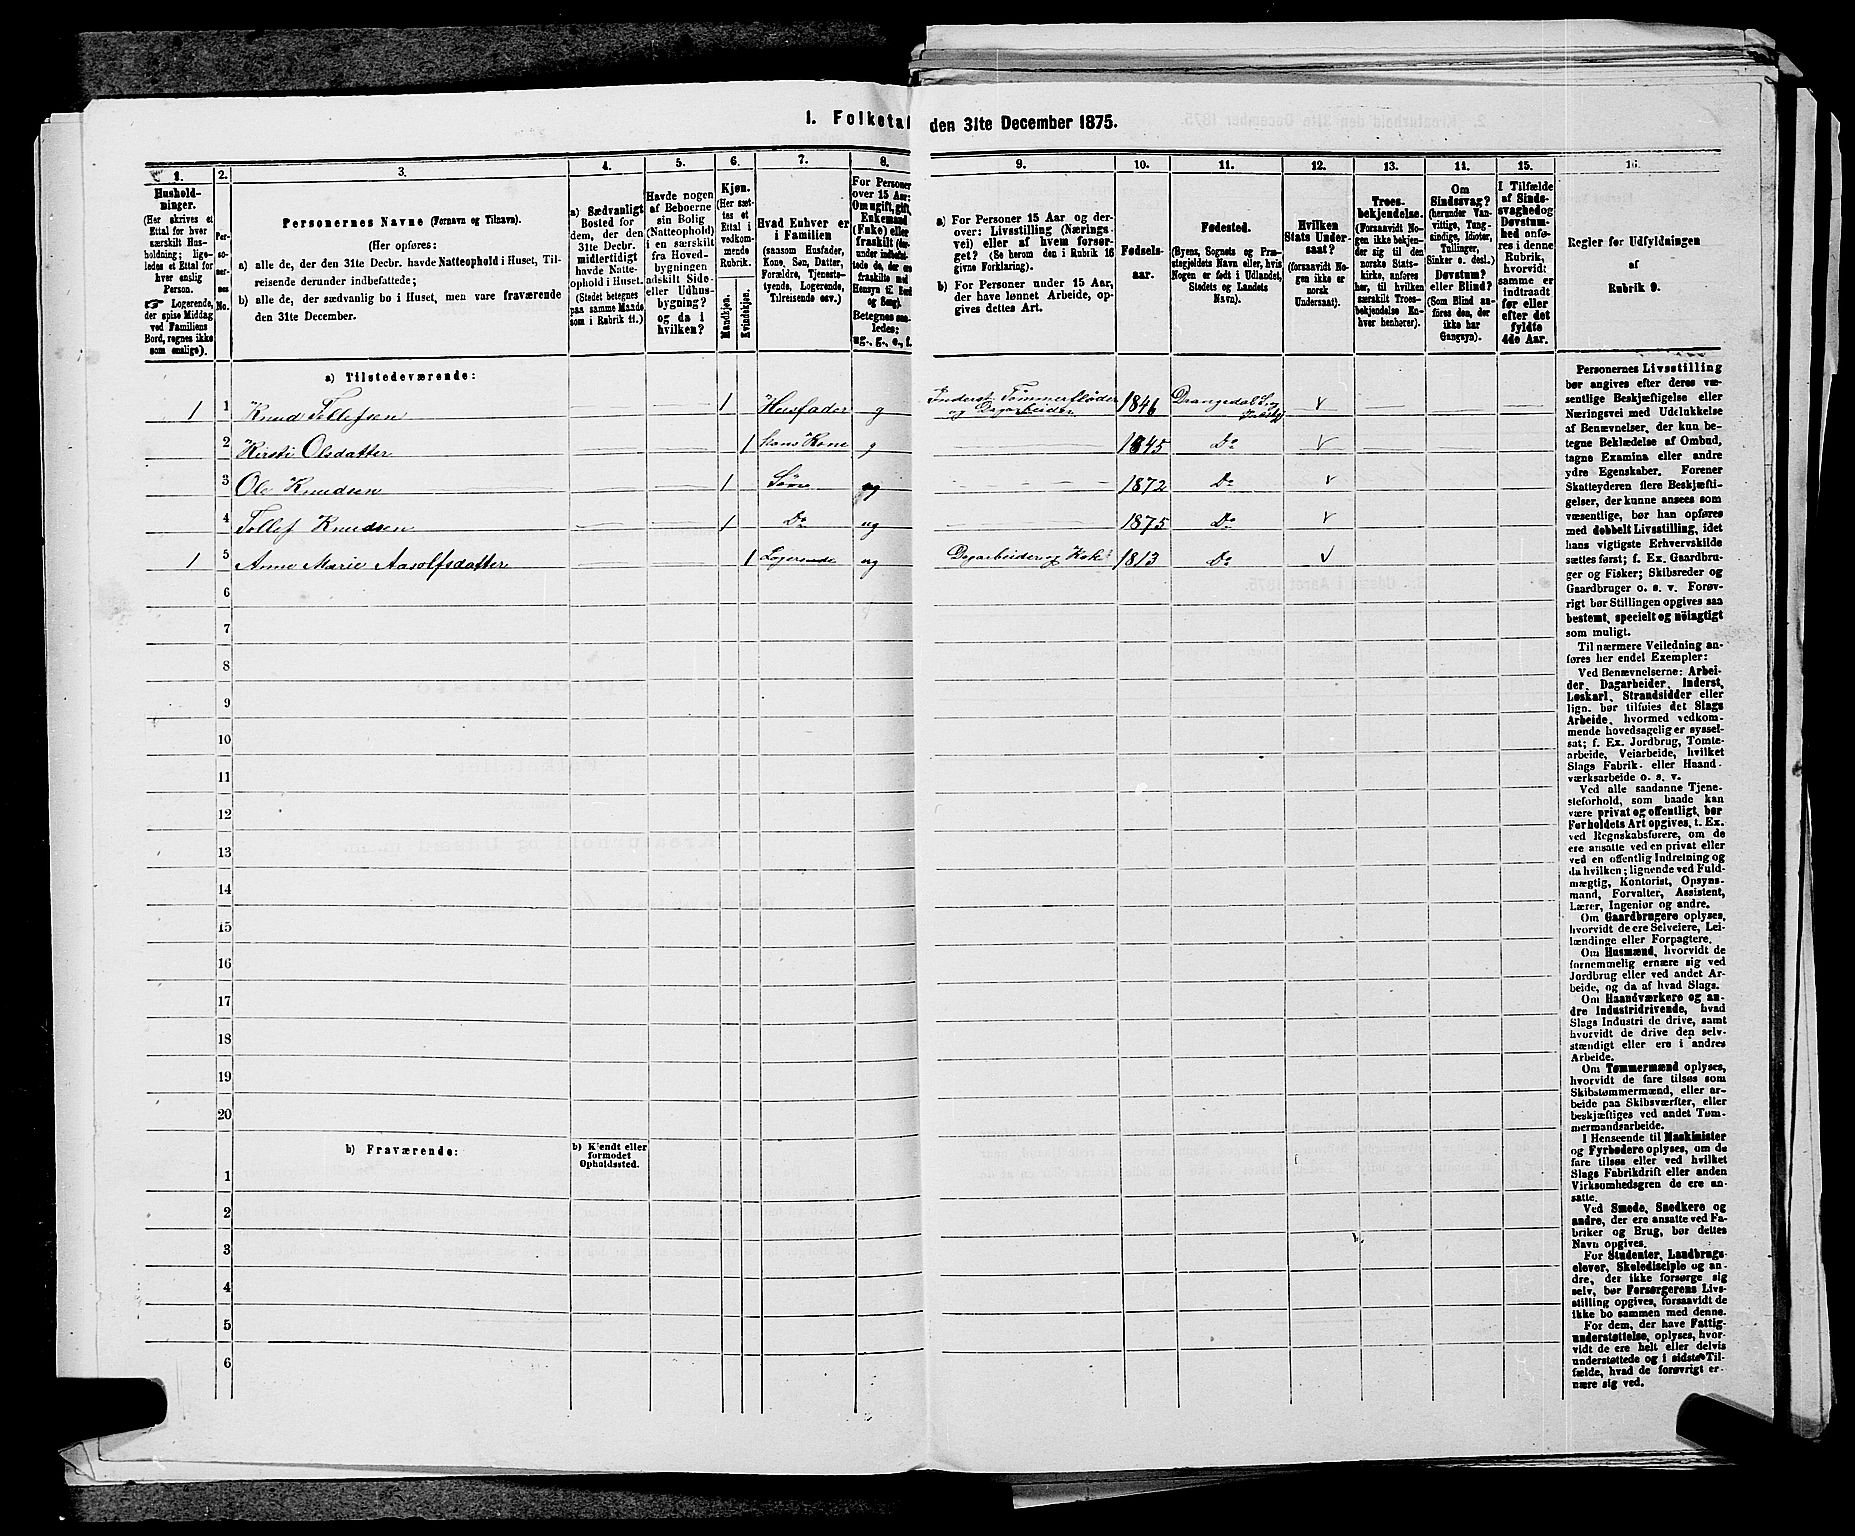 1. Folketal den 31te December 1875.
1.
Hushold-
ninger.
(Her skrives et
Ettal for hver
særskilt Hus-
holdning; lige-
ledes et Ettal for
hver enslig
Person.
☞ Logerende,
der spise Middag
ved Familiens
Bord, regnes ikke
som enslige).
2.
Per-
so-
ner-
nes
No.
3.
Personernes Navne (Fornavn og Tilnavn).
(Her opføres:
a) alle de, der den 31te Decbr. havde Natteophold i Huset, Til-
reisende derunder indbefattede;
b) alle de, der sædvanlig bo i Huset, men vare fraværende
den 31te December.
4.
a) Sædvanligt
Bosted for
dem, der den
31te Decbr.
midlertidigt
havde Natte-
ophold i Huset.
(Stedet betegnes
paa samme Maade
som i Rubrik 11.)
5.
Havde nogen
af Beboerne
sin Bolig
(Natteophold)
i en særskilt
fra Hoved-
bygningen
adskilt Side-
eller Udhus-
bygning?
og da i
hvilken?
6.
Kjøn.
(Her sæt-
tes et
Ettal i
vedkom-
mende
Rubrik.
Mandkjøn.
Kvindekjøn.
7.
Hvad Enhver er
i Familien
(saasom Husfader,
Kone, Søn, Datter,
Forældre, Tjeneste-
tyende, Logerende,
Tilreisende osv.)
8.
For Personer
over 15 Aar:
Om ugift, gift,
Enkemand
(Enke) eller
fraskilt (der-
under indbefat-
tede de, der ere
fraskilte med
Hensyn til Bord
og Seng).
Betegnes saa-
ledes:
ug., g., e., f.
9.
a) For Personer 15 Aar og der-
over: Livsstilling (Nærings-
vei) eller af hvem forsør-
get? (Se herom den i Rubrik 16
givne Forklaring).
b) For Personer under 15 Aar,
der have lønnet Arbeide, op-
gives dettes Art.
10.
Fødsels-
aar.
11.
Fødested.
(Byens, Sognets og Præ-
stegjeldets Navn eller, hvis
Nogen er født i Udlandet,
Stedets og Landets
Navn).
12.
Hvilken
Stats Under-
saat?
(forsaavidt No-
gen ikke er
norsk
Undersaat).
13.
Troes-
bekjendelse.
(Forsaavidt No-
gen ikke bekjen-
der sig til den
norske Stats-
kirke, anføres
her, til hvilken
særskilt Troes-
bekjendelse En-
hver henhører).
14.
Om
Sindssvag?
(herunder Van-
vittige, Tung-
sindige, Idioter,
Tullinger,
Sinker o. desl.)
Døvstum?
eller Blind?
(Som Blind an-
føres den, der
ikke har
Gangsyn).
15.
I Tilfælde
af Sinds-
svaghed og
Døvstum-
hed anfø-
res i denne
Rubrik,
hvorvidt
samme er
indtraadt
før eller
efter det
fyldte
4de Aar.
16.
Regler for Udfyldningen
af
Rubrik 9.
a) Tilstedeværende:
1 1 Knud Tollefsen 1 Husfader g Inderst Tømmerfløder og Dagarbeider 1846 Drangedal
2 Kirsti Olsdatter 1 hans Kone g 1845 Do
3 Ole Knudsen 1 Søn ug 1872 Do
4 Tollef Knudsen 1 Do ug 1875 Do
1 5 Anne Marie Aasolfsdatter 1 Logerende ug Dagarbeider og 1813 Do
6
7
8
9
10
11
12
13
14
15
16
17
18
19
20
b) Fraværende:
b) Kjendt eller
formodet
Opholdssted.
1
2
3
4
5
6
Personernes Livsstilling
bør angives efter deres væ-
sentlige Beskjæftigelse eller
Næringsvei med Udelukkelse
af Benævnelser, der kun be-
tegne Beklædelse af Ombud,
tagne Examina eller andre
ydre Egenskaber. Forener
Skatteyderen flere Beskjæfti-
gelser, der kunne ansees som
væsentlige, bør han opføres
med dobbelt Livsstilling, idet
hans vigtigste Erhvervskilde
sættes først; f. Ex. Gaardbru-
ger og Fisker; Skibsreder og
Gaardbruger o. s. v. Forøv-
rigt bør Stillingen opgives saa
bestemt, specielt og nöiagtigt
som muligt.
Til nærmere Veiledning an-
føres her endel Exempler:
Ved Benævnelserne: Arbei-
der, Dagarbeider, Inderst,
Løskarl, Strandsidder eller
lign. bør tilføies det Slags
Arbeide, hvormed vedkom-
mende hovedsagelig er syssel-
sat; f. Ex. Jordbrug, Tomte-
arbeide, Veiarbeide, hvilket
Slags Fabrik- eller Haand-
værksarbeide o. s. v.
Ved alle saadanne Tjene-
steforhold, som baade kan
være privat og offentligt, bør
Forholdets Art opgives, t. Ex.
ved Regnskabsførere, om de
ere ansatte ved en privat eller
ved en offentlig Indretning og
da hvilken; lignende ved Fuld-
mægtig, Kontorist, Opsyns-
mand, Forvalter, Assistent,
Lærer, Ingeniør og andre.
Om Gaardbrugere oplyses,
hvorvidt de ere Selveiere, Lei-
lændinge eller Forpagtere.
Om Husmænd, hvorvidt de
fornemmelig ernære sig ved
Jordbrug eller ved andet Ar-
beide, og da af hvad Slags.
Om Haandværkere og an-
dre Industridrivende, hvad
Slags Industri de drive, samt
hvorvidt de drive den selv-
stændigt eller ere i andres
Arbeide.
Om Tømmermænd oplyses,
hvorvidt de fare tilsøs som
Skibstømmermænd, eller ar-
beide paa Skibsværfter, eller
beskjæftiges ved andet Tøm-
mermandsarbeide.
I Henseende til Maskinister
og Fyrbødere oplyses, om de
fare tilsøs eller ved hvilket
Slags Fabrikdrift eller anden
Virksomhedsgren de ere an-
satte.
Ved Smede, Snedkere og
andre, der ere ansatte ved Fa-
briker og Brug, bør dettes
Navn opgives.
For Studenter, Landbrugs-
elever, Skoledisciple og an-
dre, der ikke forsørge sig
selv, bør Forsørgerens Livs-
stilling opgives, forsaavidt de
ikke bo sammen med denne.
For dem, der have Fattig-
understøttelse, oplyses, hvor-
vidt de ere helt eller delvis
understøttede og i sidste Til-
fælde, hvad de forøvrigt er-
nære sig ved.